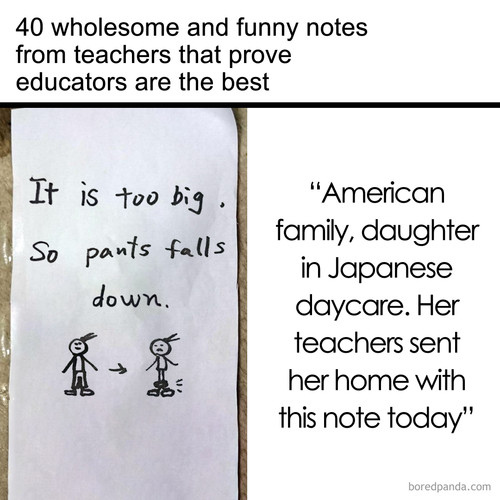 40 wholesome and funny notes
from teachers that prove
educators are the best
It is too big.
So pants falls
down.
“American
family, daughter
in Japanese
daycare. Her
teachers sent
her home with
this note today”
boredpanda.com